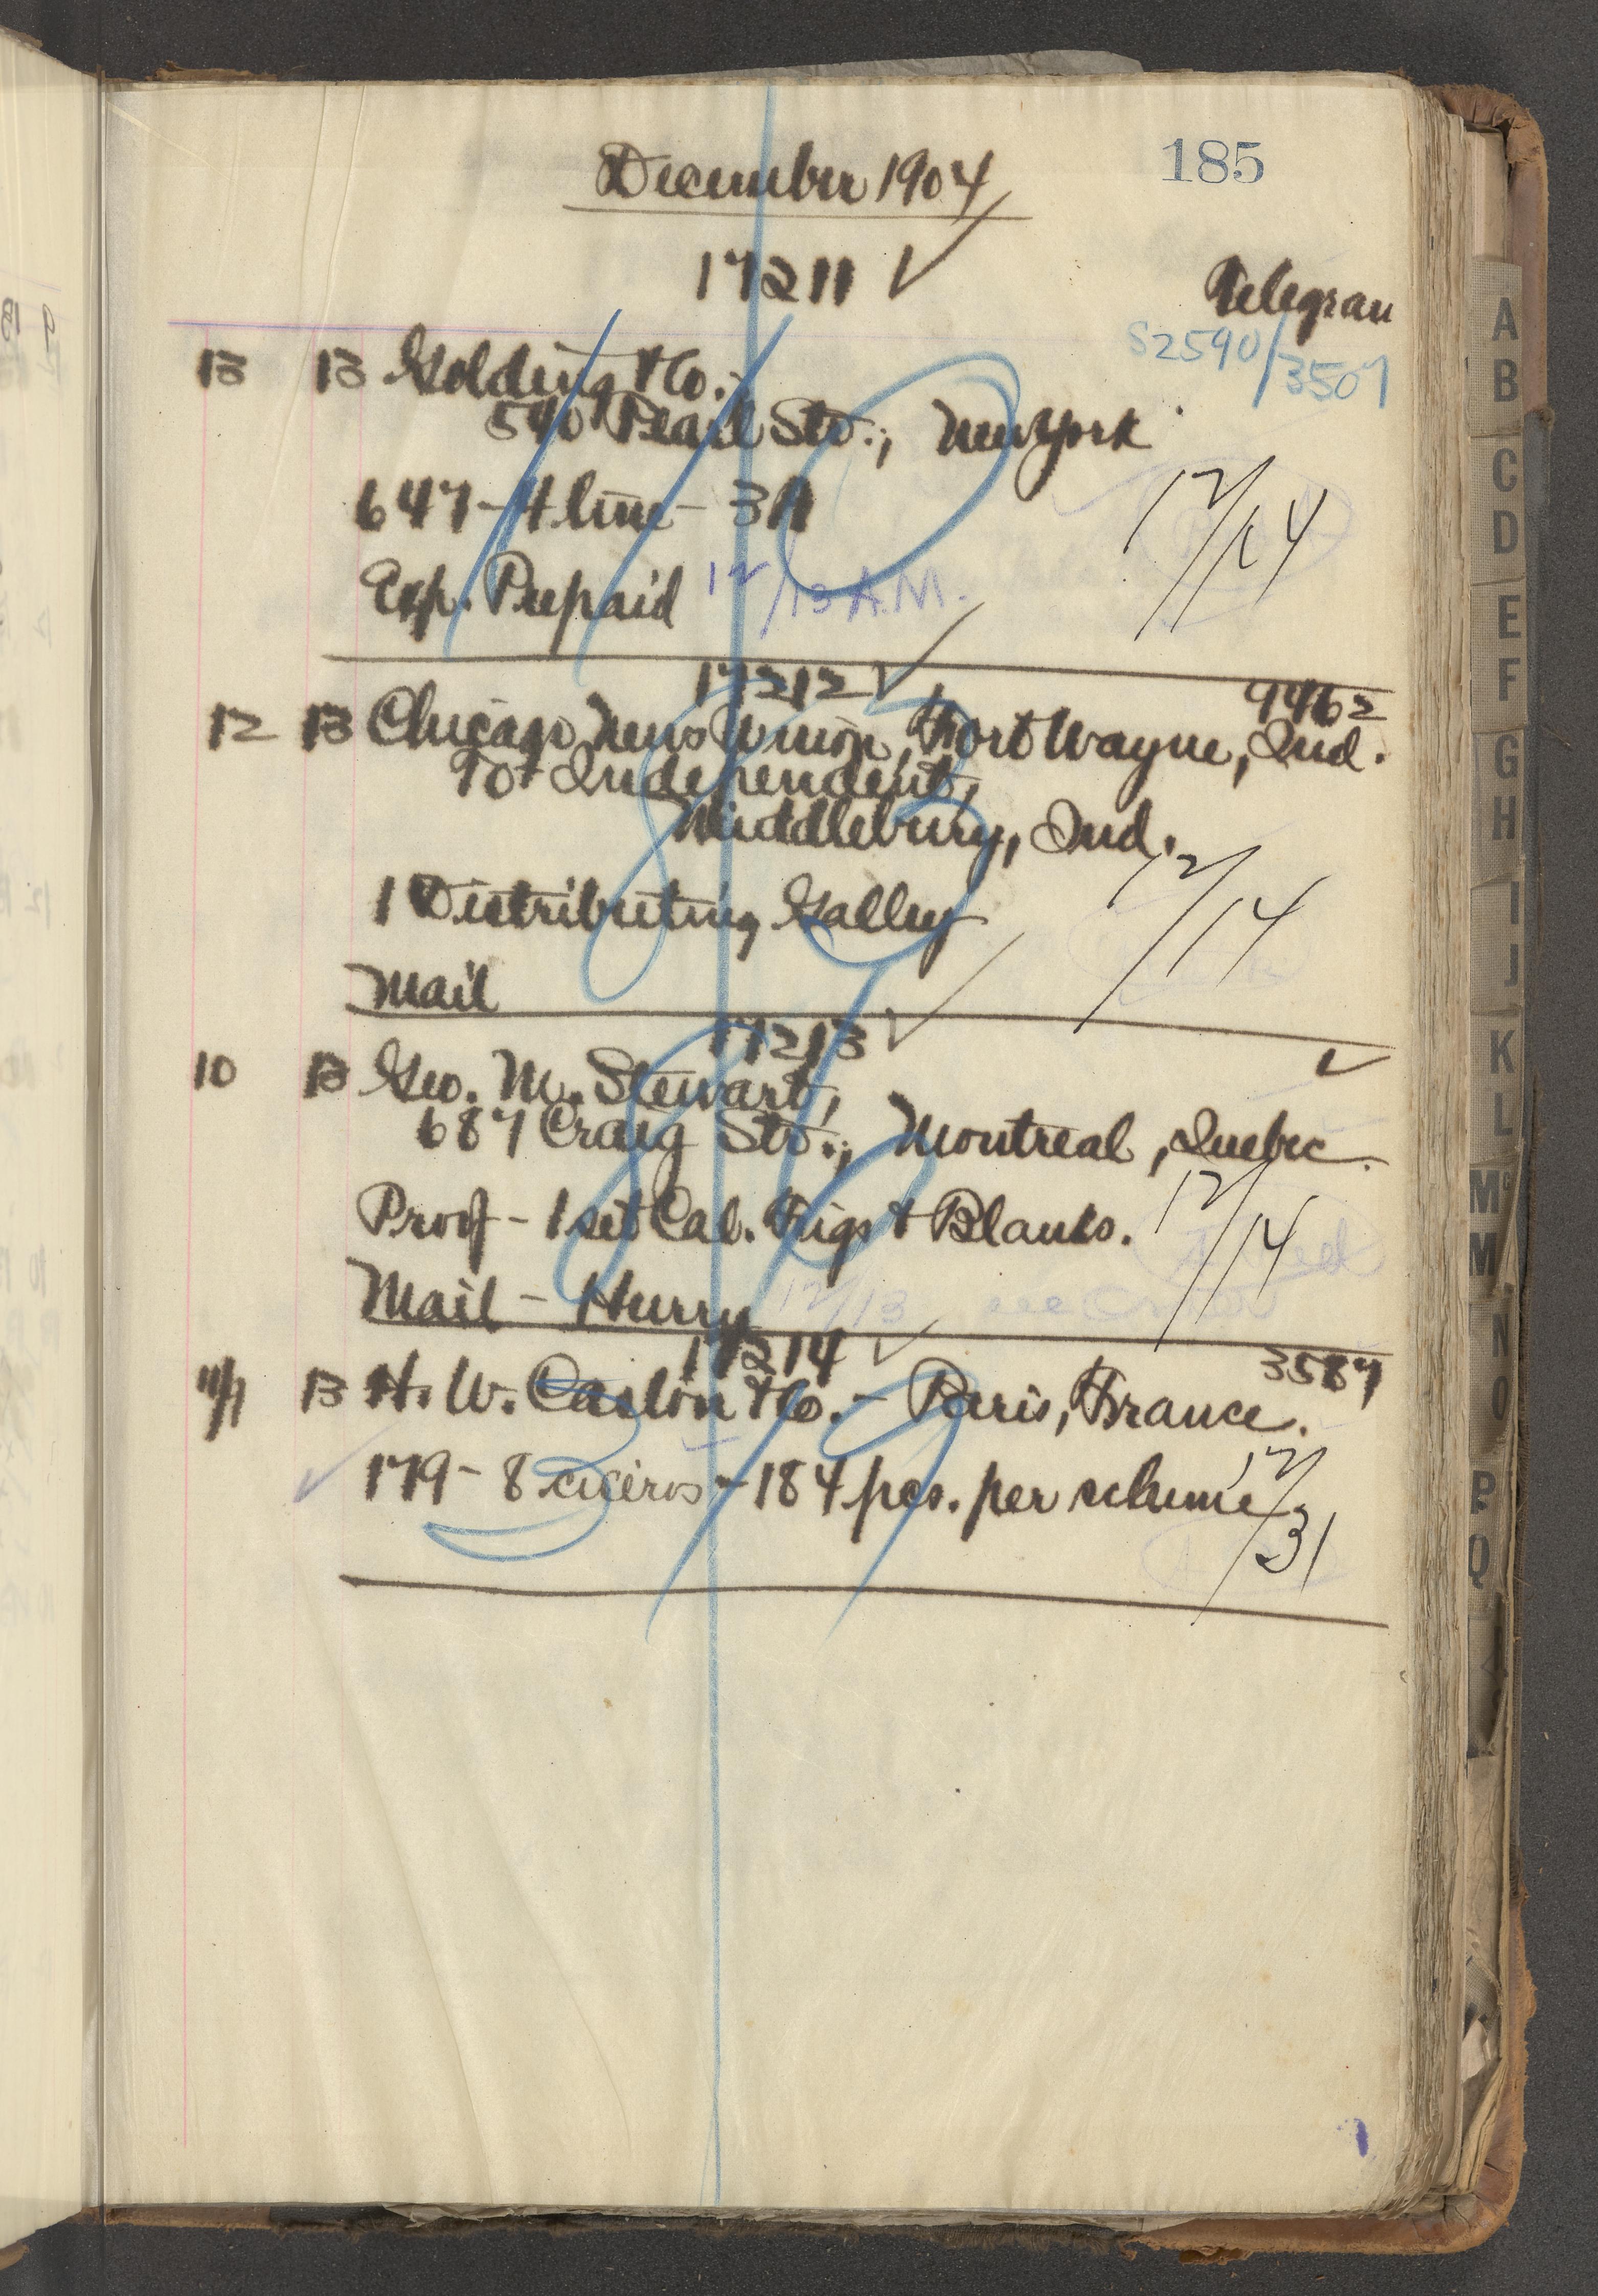 185
December 1904
17211 ✓
Telegram
S2590/3507
13 13 Golding & Co.,
540 Pearl Str., New York
647 - 4 line - 3A
12/14
Exp. Prepaid 12/13 A.M.
17212 ✓
9462
12 13 Chicago News Union, Fort Wayne, Ind.
To Independent,
Middlebury, Ind.
1 Distributing Galley
12/14
Mail
17213 ✓
10 13 Geo. M. Stewart,
687 Craig Str., Montreal, Quebec.
Proof - 1 set Cal. Figs & Blanks.
12/14
Mail - Hurry 12/13
17214 ✓
3587
11/7 13 H. W. Caslon & Co. - Paris, France.
179 - 8 ciceros - 184 pcs. per scheme.
12/31
A
B
C
D
E
F
G
H
I
J
K
L
Mc
M
N
O
P
Q